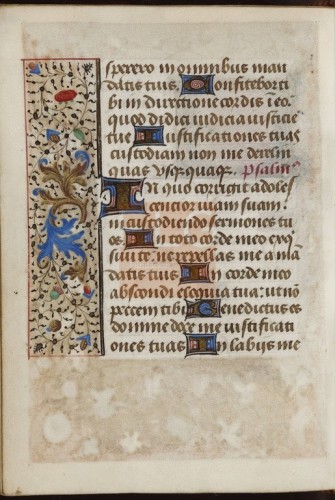 spexero in omnibus man
datis tuis. Confitebor ti
bi in directione cordis i eo.
quod didici iudicia iusticie
tue Iustificationes tuas
custodiam non me derelin
quas usquequaque. psalm
In quo corrigit adoles
centior viam suam?
in custodiendo sermones tu
os. In toto corde meo exq
sui te: ne repellas me a mā
datis tuis In corde meo
abscondi eloquia tua: ut nō
peccem tibi Benedictus es
domine doce me iustificati
ones tuas In labijs me